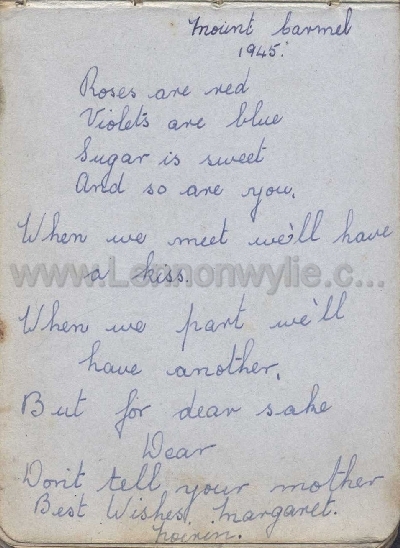 Mount Carmel
1945.
Roses are red
Violets are blue
Sugar is sweet
And so are you.
When we meet we'll have
www.Lennonwylie.c...
a kiss.
When we part we'll
have another.
But for dear sake
Dear
Don't tell your mother
Best Wishes. Margaret.